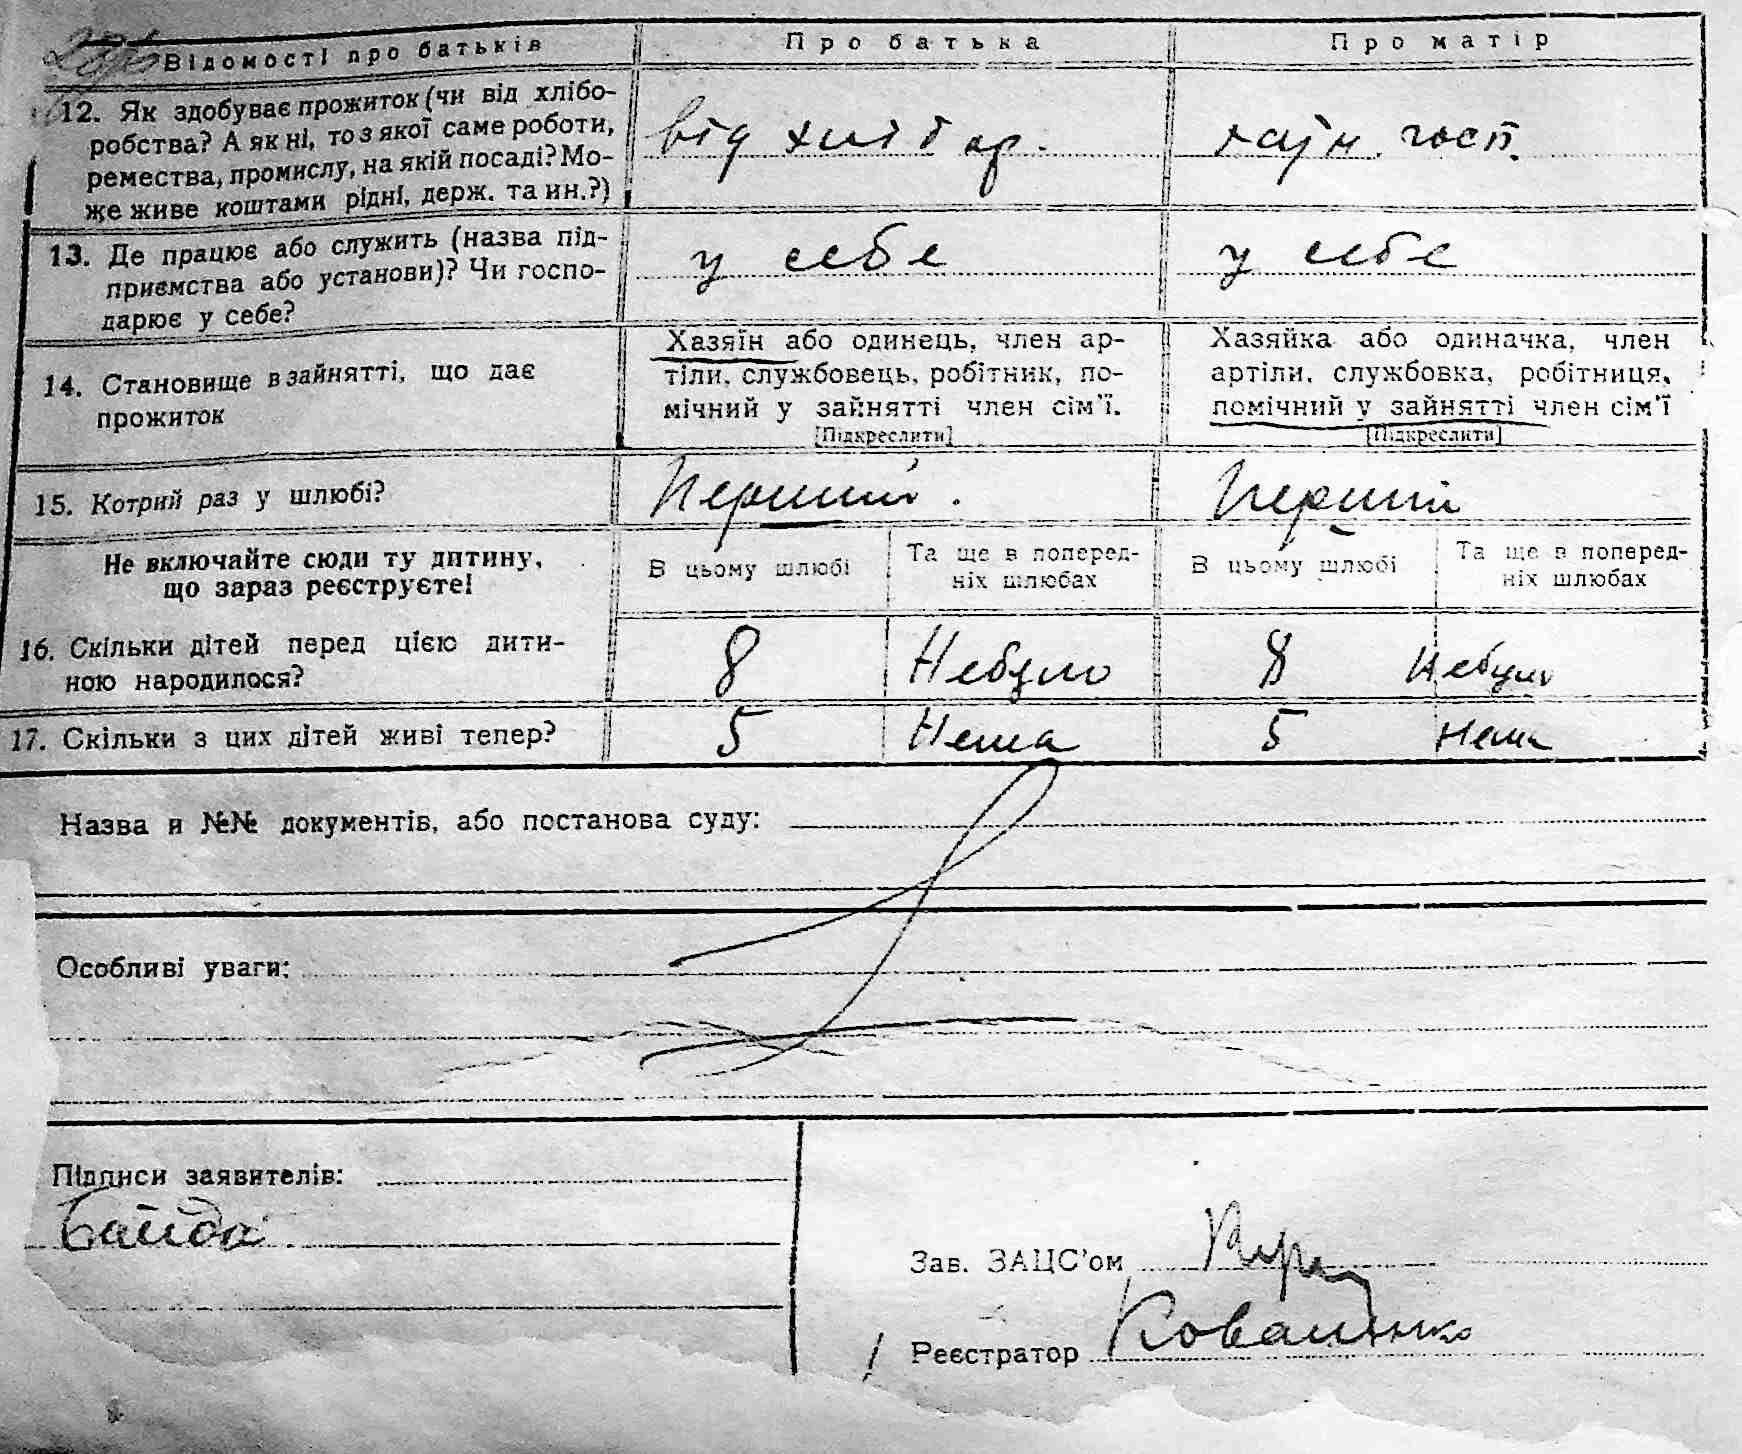 Відомості про батьків
Про батька
Про матір
12. Як здобуває прожиток (чи від хлібо-
робства? А як ні, то з якої саме роботи,
ремества, промислу, на якій посаді? Мо-
же живе коштами рідні, держ. та ин.?)
від хлібор.
госп.
13. Де працює або служить (назва під-
приємства або установи)? Чи госпо-
дарює у себе?
у себе
у себе
14. Становище в зайнятті, що дає
прожиток
Хазяїн або одинець, член ар-
тіли, службовець, робітник, по-
мічний у зайнятті член сім'ї.
[Підкреслити]
Хазяйка або одиначка, член
артіли, службовка, робітниця,
помічний у зайнятті член сім'ї
[Підкреслити]
15. Котрий раз у шлюбі?
Перший.
Перший
Не включайте сюди ту дитину,
що зараз реєструєте!
В цьому шлюбі
Та ще в поперед-
ніх шлюбах
В цьому шлюбі
Та ще в поперед-
ніх шлюбах
16. Скільки дітей перед цією дити-
ною народилося?
8
Небуло
8
Небуло
17. Скільки з цих дітей живі тепер?
5
Нема
5
Нема
Назва и №№ документів, або постанова суду:
Особливі уваги:
Підписи заявителів:
Байда
Зав. ЗАЦС'ом
Реєстратор Коваленко